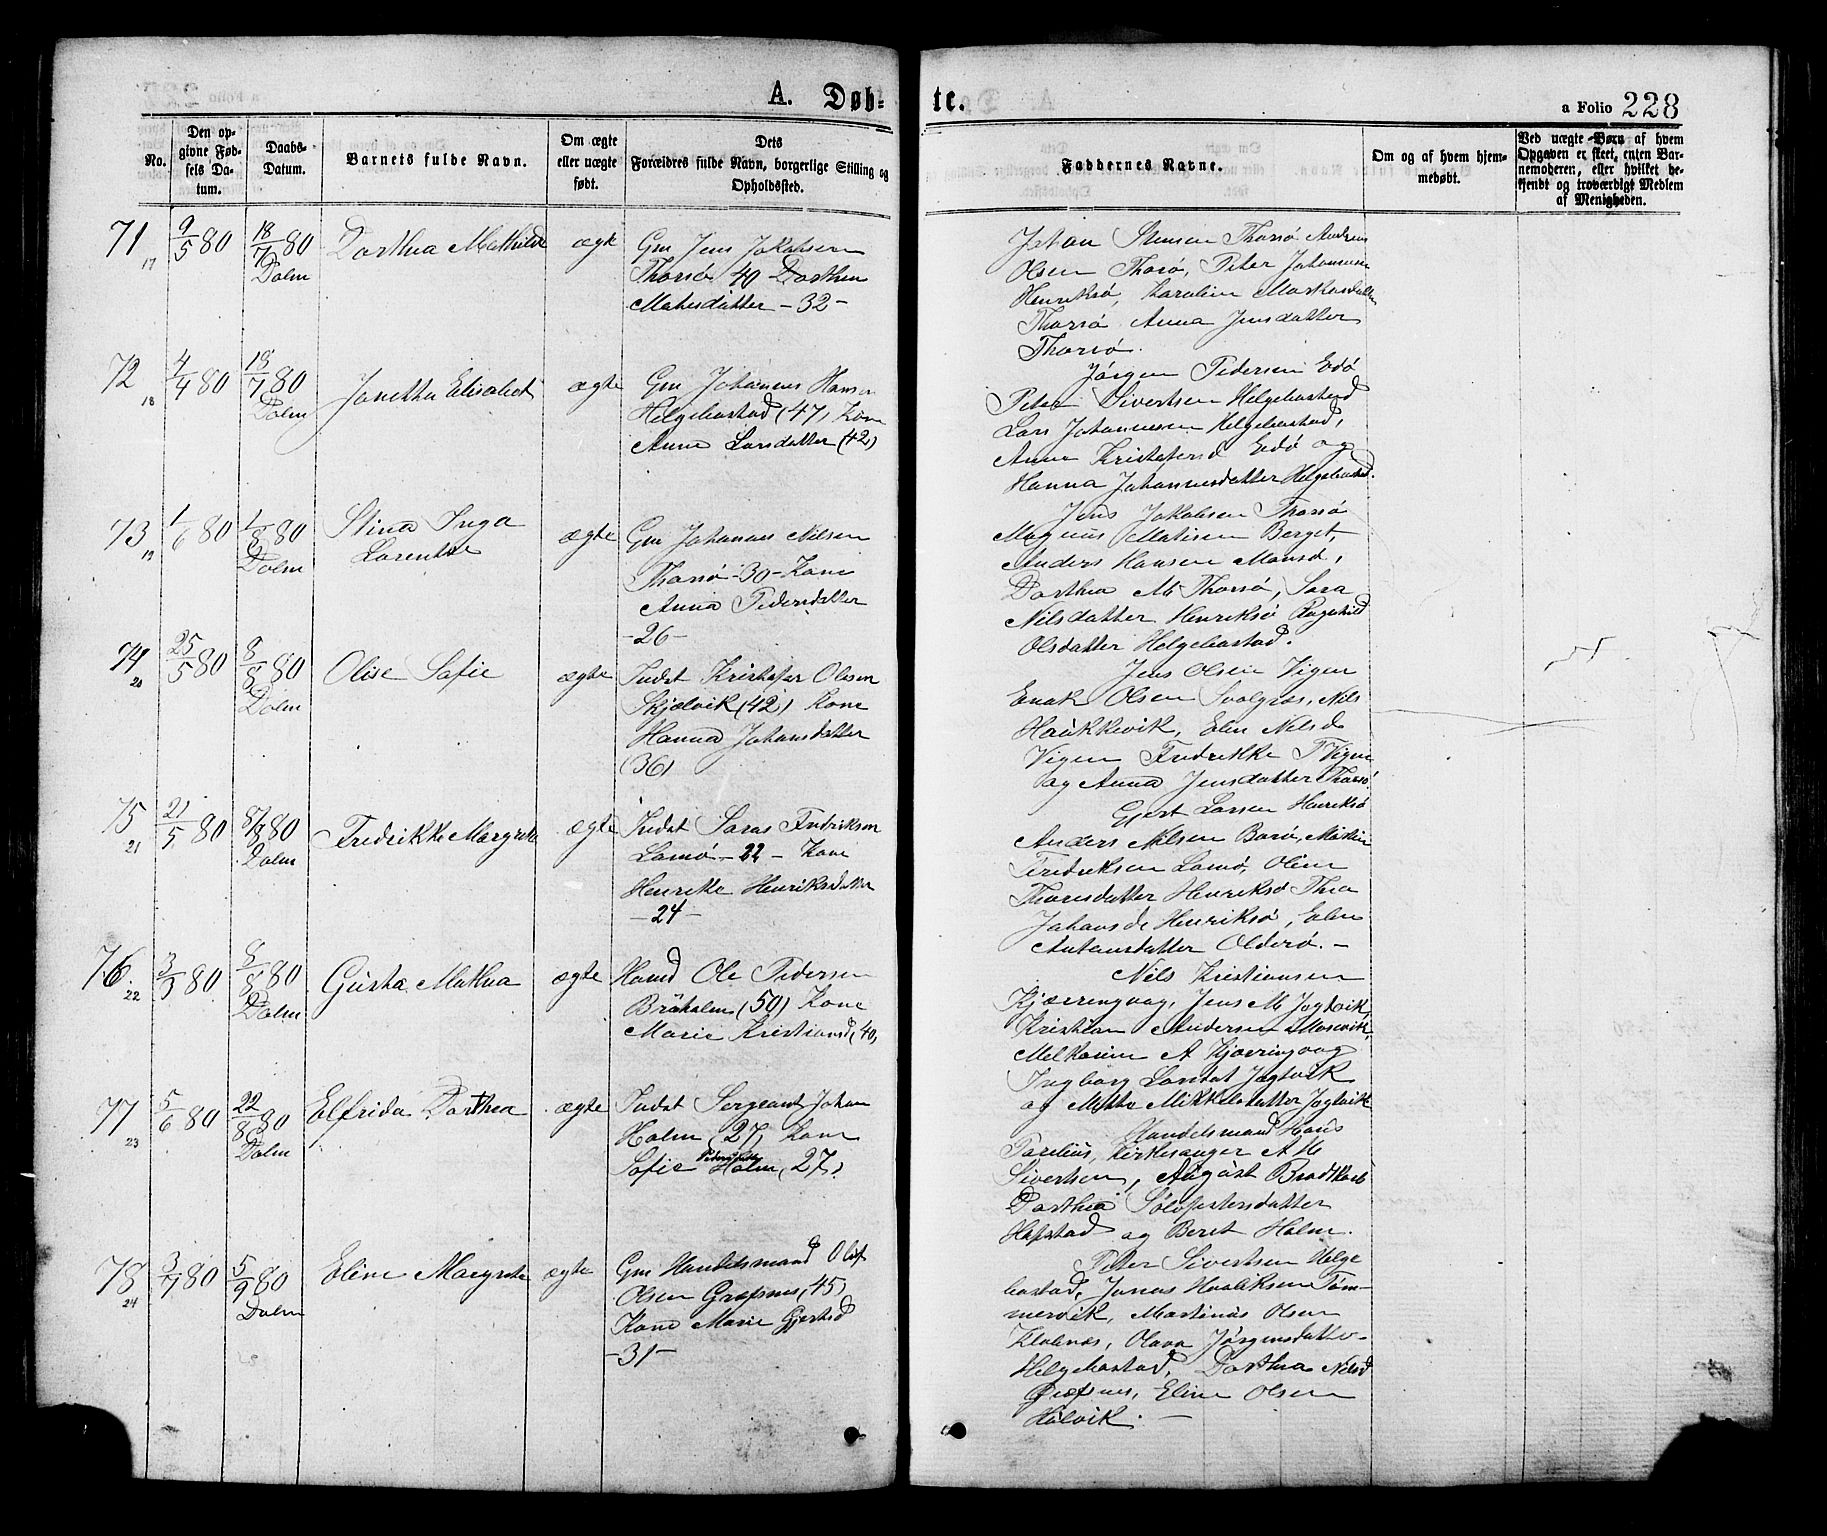 A. Døb-
te.
a Folio 228
No.
Den op-
givne Fød-
sels Da-
tum.
Daabs-
Datum.
Barnets fulde Navn.
Om ægte
eller uægte
født.
Dets
Forældres fulde Navn, borgerlige Stilling og
Opholdssted.
Faddernes Navne.
Om og af hvem hjem-
medøbt.
Ved uægte Børn af hvem
Opgaven er skeet, enten Bar-
nemoderen, eller hvilket be-
kjendt og troværdigt Medlem
af Menigheden.
71
17
9/5 80
18/7 80
Dolm
Dorthea Mathilde
ægte
Gm Jens Jakobsen
Thorsø 40 Dorthea
Matisdatter - 32 -
Johan Thorsø Andreas
Olsen Thorsø, Peter Johannesen
Henriksø, Karoline
Thorsø Anna Jensdatter
Thorsø.
72
18
4/4 80
18/7 80
Dolm
Janetha Elisabet
ægte
Gm Johannes Hansen
Helgebostad (47) Kone
Anne Larsdatter (42)
Jørgen Pedersen Edø
Peter Sivertsen Helgebostad
Lars Johannesen Helgebostad,
Anne Kristofersd Edø og
Hanna Johannesdatter Helgebostad.
73
19
1/6 80
1/8 80
Dolm
Stina Inga
Lorentse
ægte
Gm Johannes Nilsen
Thorsø - 30 - Kone
Anna Pedersdatter
- 26 -
Jens Jakobsen Thorsø
Magnus Matisen Berget,
Anders Hansen
Dorthea M. Thorsø, Sara
Nilsdatter Henriksø Ragnhild
Olsdatter Helgebostad.
74
20
25/5 80
8/8 80
Dolm
Olise Sofie
ægte
Indst Kristofer Olsen
Skjælvik (42) Kone
Hanna Johansdatter
(36)
Jens Olsen Vigen
Enok Olsen Nils
Haukkevik, Elen Nilsd
Vigen Fredrikke P Vigen
og Anna Jensdatter Thorsø
75
21
21/5 80
8/8 80
Dolm
Fredrikke Margrete
ægte
Indst Fredriksen
Lamø - 22 - Kone
Henrikke Henriksdatter
- 24 -
Gjert Larsen Henriksø
Anders Nilsen Barø, Martin
Fredriksen Lamø, Oline
Henriksø Thea
Johansd Henriksø, Elen
Antonsdatter Olderø. -
76
22
3/3 80
8/8 80
Dolm
Gusta Mathea
ægte
Hmd Ole Pedersen
Bråholm (50) Kone
Marie Kristiansd (40)
Nils Kristiansen
Kjærringvaag, Jens M Jøgtvik,
Kristian Andersen
A Kjærringvaag
Ingborg Jøgtvik
og Mette Mikkelsdatter Jøgtvik
77
23
5/6 80
22/8 80
Dolm
Elfrida Dorthea
ægte
Indst Sergeant Johan
Holm (27) Kone
Sofie Holm (27)
Handelsmand Hans
Parelius, Kirkesanger A M
Sivertsen, August
Dorthea
Hopstad og Beret Holm.
78
24
3/7 80
5/9 80
Dolm
Eline Margrete
ægte
Gm Handelsmand Olaf
Olsen Græfsnes (45)
Kone Marie Gjertsd
- 31 -
Peter Sivertsen Helge
bostad, Jonas Tøm-
mervik, Martinus Olsen
Olava Jørgensdatter
Helgebostad, Dorthea Nilsd
Græfsnes, Eline Olsen
Holvik. -